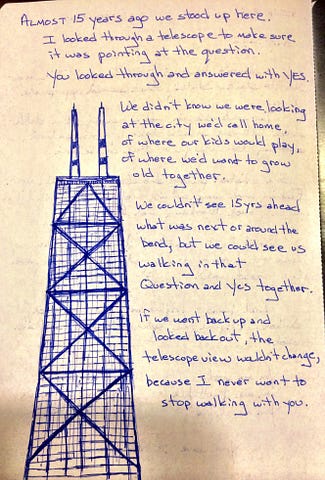 Almost 15 years ago we stood up here.
I looked through a telescope to make sure
it was pointing at the question.
You looked through and answered with Yes.
We didn't know we were looking
at the city we'd call home,
of where our kids would play,
of where we'd want to grow
old together.
We couldn't see 15 yrs ahead
what was next or around the
bend, but we could see us
walking in that
Question and Yes together.
If we went back up and
looked back out, the
telescope view wouldn't change,
because I never want to
stop walking with you.